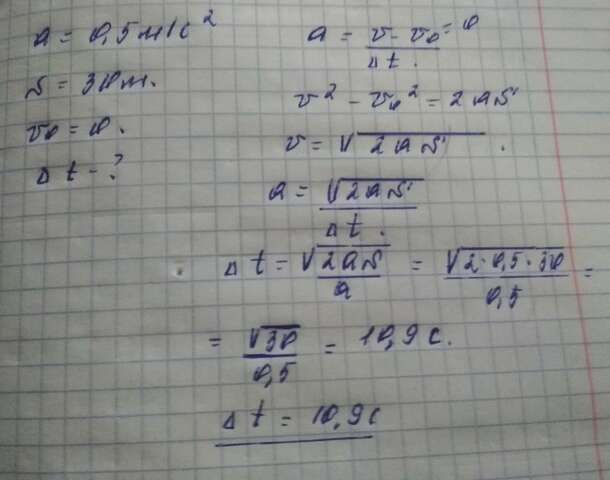 a = 0,5 м/с²
s = 30 м.
v₀ = 0.
Δt - ?
a = (v - v₀ = 0) / Δt.
v² - v₀² = 2as
v = √(2as).
a = √(2as) / Δt.
Δt = √(2as) / a = √(2·0,5·30) / 0,5 =
= √30 / 0,5 = 10,9 с.
Δt = 10,9 с